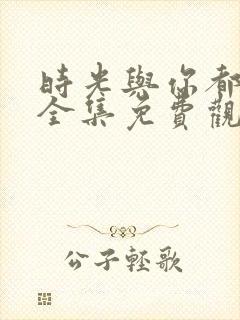 時光與你都
全集免費觀
公子輕歌